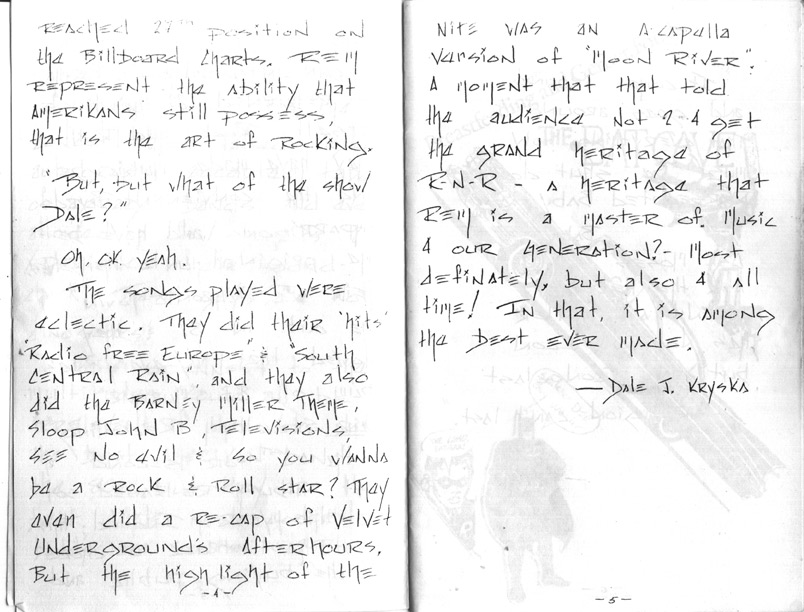 reached 27th position on
the Billboard charts. REM
represent the ability that
Amerikans still possess,
that is the art of Rocking.
"But, but what of the show
Dale?"
Oh, OK yeah.
The songs played were
eclectic. They did their 'hits'
"Radio free Europe" & "South
Central Rain", and they also
did the Barney Miller Theme,
Sloop John B, Televisions,
see no evil & so you wanna
be a Rock & Roll star? They
even did a re-cap of Velvet
Undergrounds Afterhours.
But the highlight of the
-4-
Nite was an A.capella
version of "Moon River".
A moment that that told
the audience not 2-4get
the grand heritage of
R-N-R - a heritage that
REM is a master of. Music
4 our Generation?- Most
definately, but also 4 all
time! In that, it is among
the best ever made.
— Dale J. Kryska
-5-